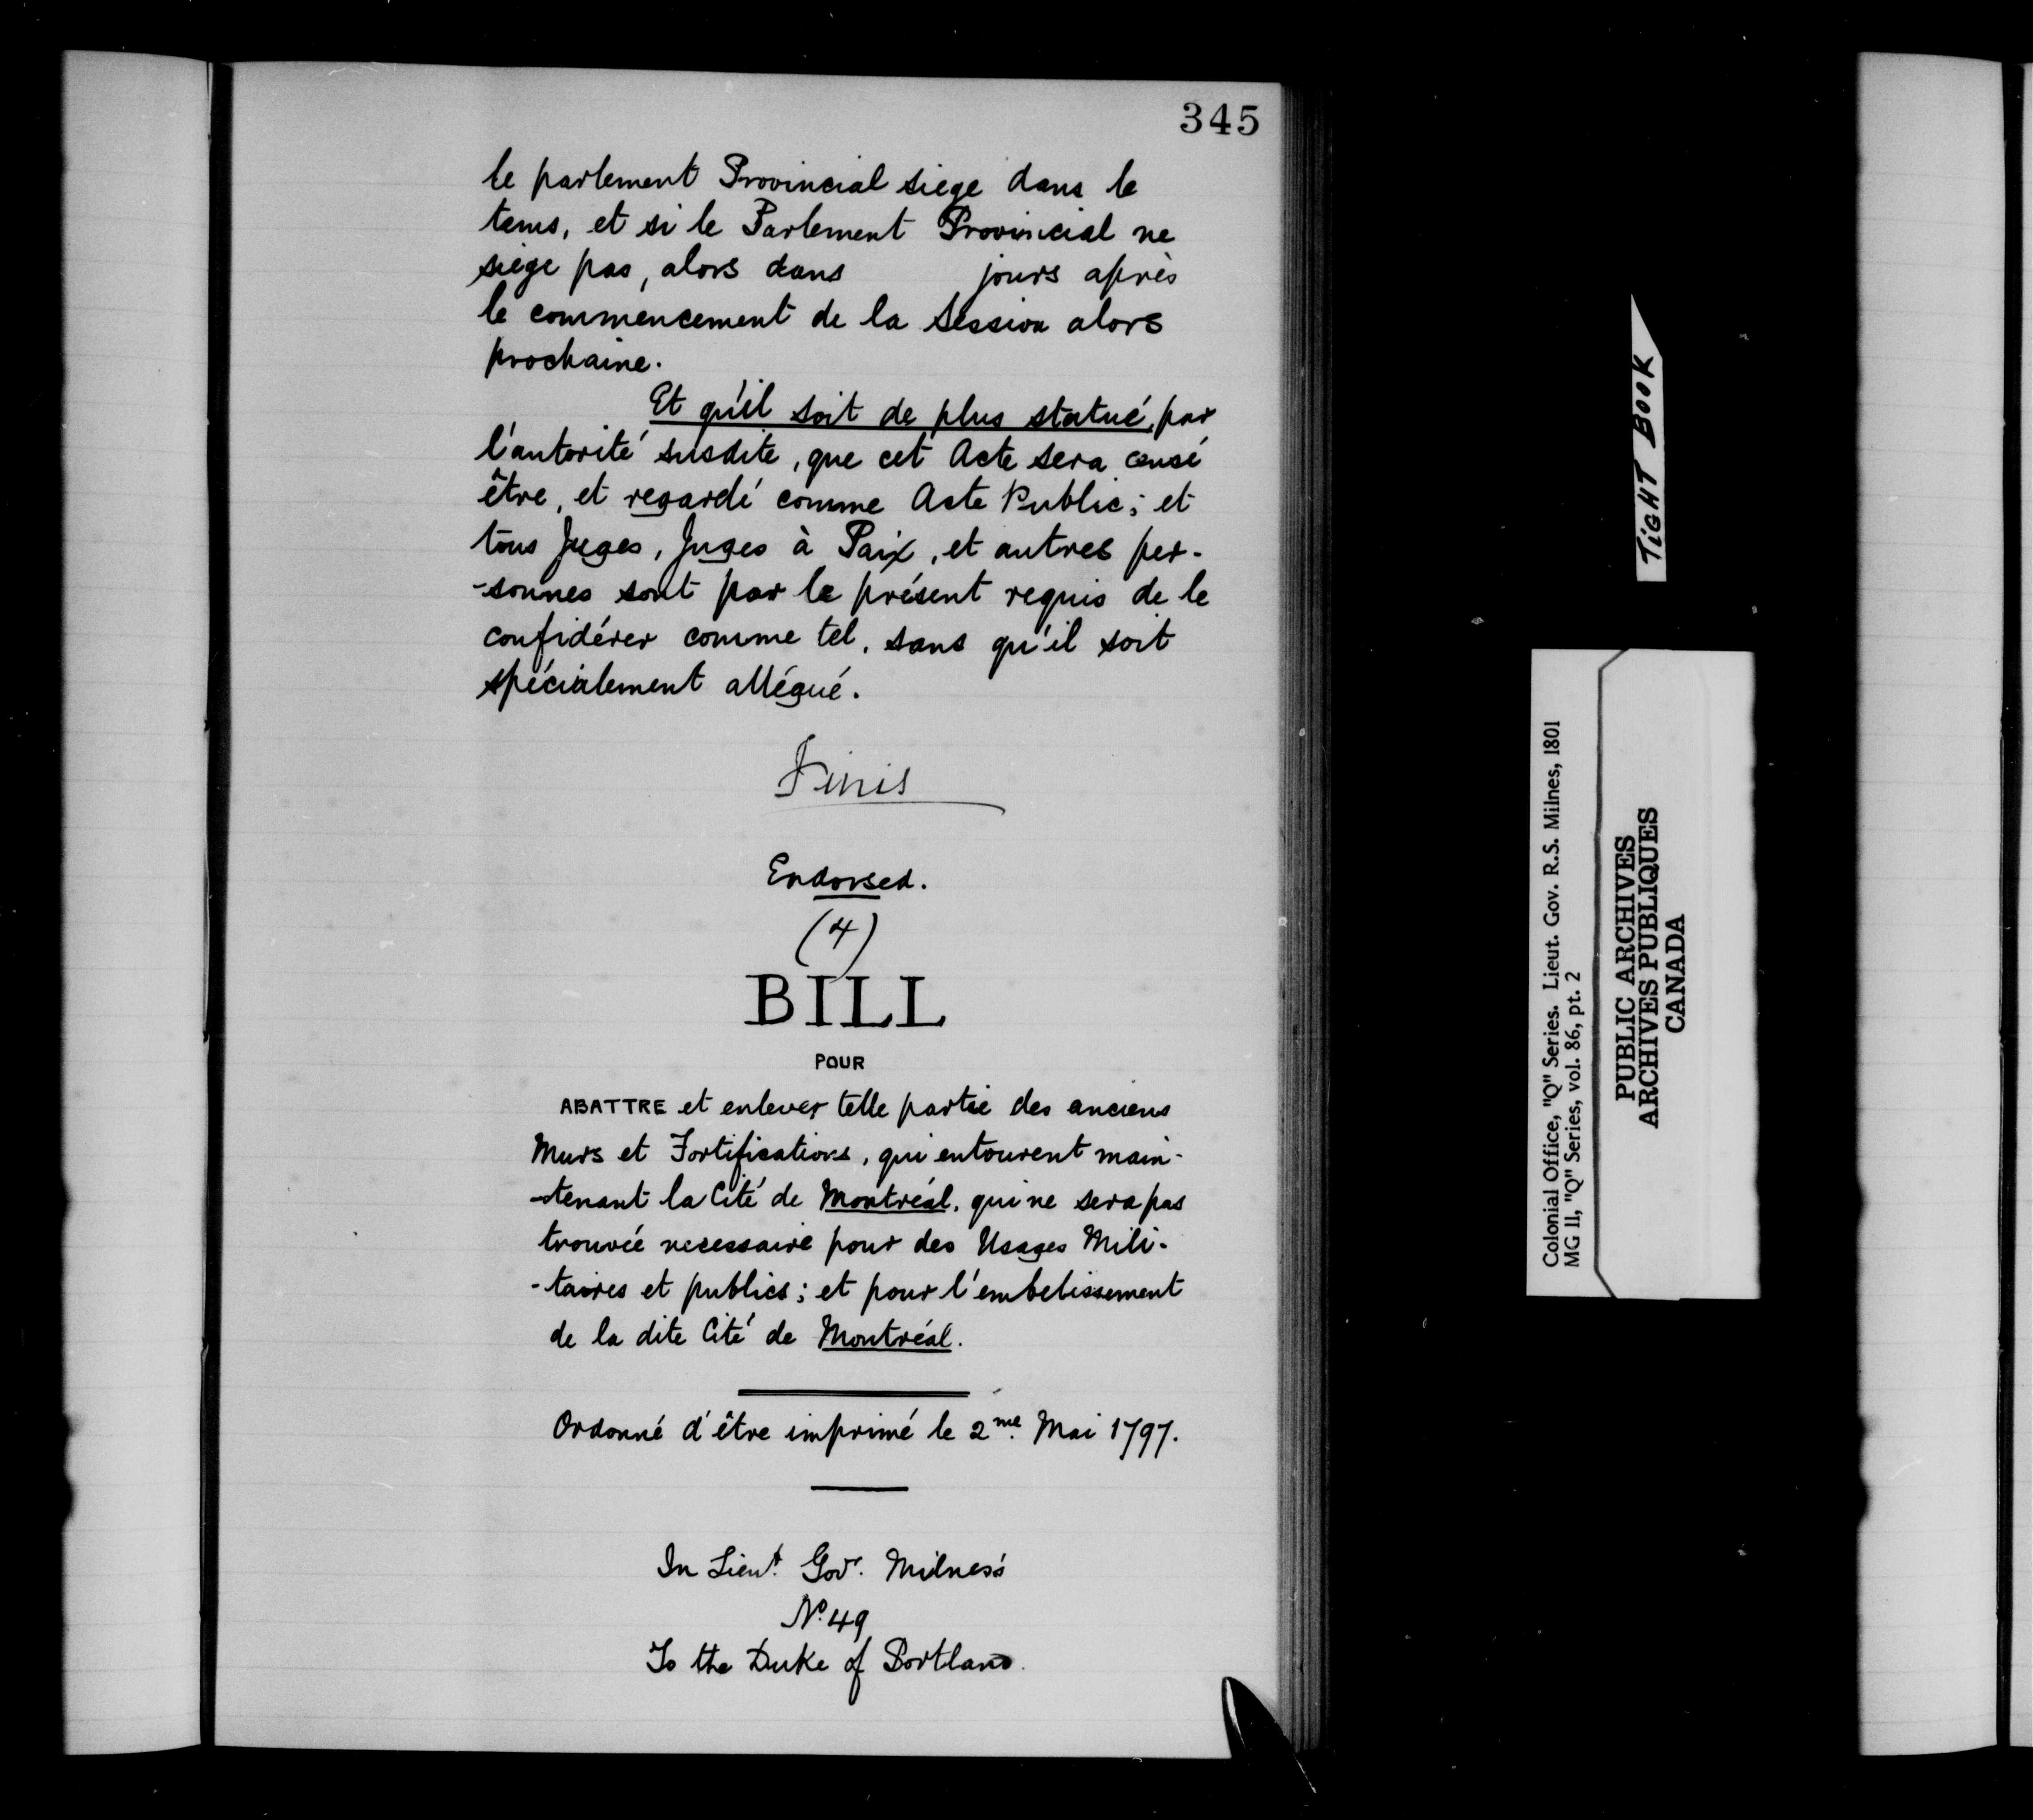 345
le parlement Provincial siege dans le
tems, et si le Parlement Provincial ne
siège pas, alors dans jours après
le commencement de la Session alors
prochaine.
Et qu'il soit de plus statué, par
l'autorité susdite, que cet Acte sera censé
être, et regardé comme Acte Public; et
tous Juges, Juges à Paix, et autres per-
-sonnes sont par le présent requis de le
confidérer comme tel, sans qu'il soit
spécialement allégué.
Finis
Endorsed.
(4)
BILL
POUR
ABATTRE et enlever telle partie des anciens
Murs et Fortifications, qui entourent main-
-tenant la Cité de Montréal, qui ne sera pas
trouvée necessaire pour des Usages Mili-
-taires et publics; et pour l'embelissement
de la dite Cité de Montréal.
Ordonné d'être imprimé le 2me. Mai 1797.
In Lieut. Govr. Milnes's
No. 49
To the Duke of Portland.
TIGHT BOOK
Colonial Office, "Q" Series. Lieut. Gov. R.S. Milnes, 1801
MG 11, "Q" Series, vol. 86, pt. 2
PUBLIC ARCHIVES
ARCHIVES PUBLIQUES
CANADA